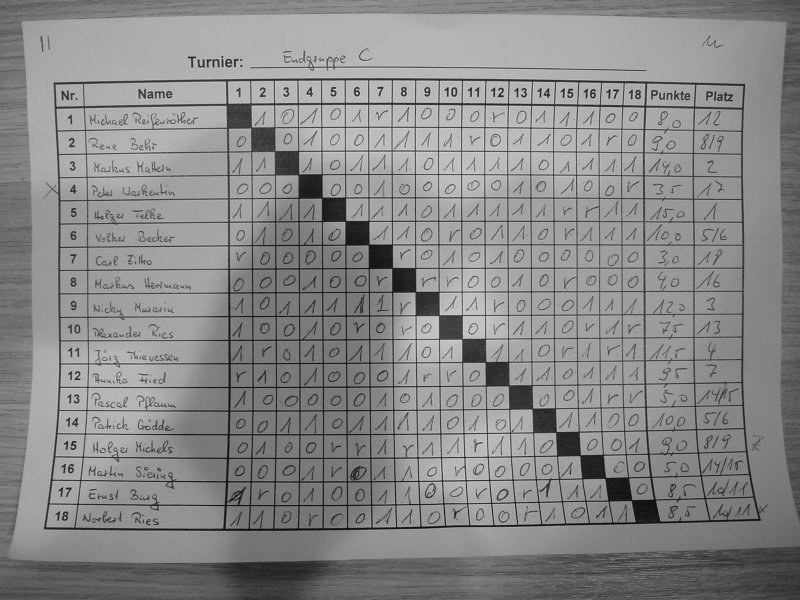 11
Turnier: Endgruppe C
Nr. Name 1 2 3 4 5 6 7 8 9 10 11 12 13 14 15 16 17 18 Punkte Platz
1 Michael Reifenröther 1 0 1 0 1 r 1 0 0 0 r 0 1 1 1 0 0 8,0 12
2 Rene Behr 0 0 1 0 0 1 1 1 1 r 0 1 1 0 1 r 0 9,0 8/9
3 Markus Mattern 1 1 1 0 1 1 1 0 1 1 1 1 0 1 1 1 1 14,0 2
4 Peter Warkentin 0 0 0 0 0 1 0 0 0 0 0 1 0 1 0 0 r 3,5 17
5 Holger Telke 1 1 1 1 1 1 1 0 1 1 1 1 1 r r 1 1 15,0 1
6 Volker Becker 0 1 0 1 0 1 1 0 r 0 1 1 0 r 1 1 1 10,0 5/6
7 Carl Zitko r 0 0 0 0 0 r 0 1 0 1 0 0 0 0 0 0 3,0 18
8 Markus Herrmann 0 0 0 1 0 0 r r r 0 0 1 0 r 0 0 0 4,0 16
9 Nicky Murarin 1 0 1 1 1 1 1 r 1 1 r 0 0 0 1 1 1 12,0 3
10 Alexander Ries 1 0 0 1 0 r 0 r 0 0 r 1 1 0 r 1 r 7,5 13
11 Jörg Thievessen 1 r 0 1 0 1 1 1 0 1 1 1 0 r 1 r 1 11,5 4
12 Annika Fried r 1 0 1 0 0 0 1 r r 0 1 1 0 1 1 1 9,5 7
13 Pascal Pflaum 1 0 0 0 0 0 1 0 1 0 0 0 0 0 1 r r 5,0 14/15
14 Patrick Gödde 0 0 1 1 0 1 1 1 1 0 1 0 1 1 1 0 0 10,0 5/6
15 Holger Michels 0 1 0 0 r r 1 r 1 1 r 1 1 0 0 0 1 9,0 8/9
16 Martin Siering 0 0 0 1 r 0 1 1 0 r 0 0 0 0 1 0 0 5,0 14/15
17 Ernst Burg 1 r 0 1 0 0 1 1 0 0 r 0 r 1 1 1 0 8,5 10/11
18 Norbert Ries 1 1 0 r 0 0 1 1 0 r 0 0 r 1 0 1 1 8,5 10/11